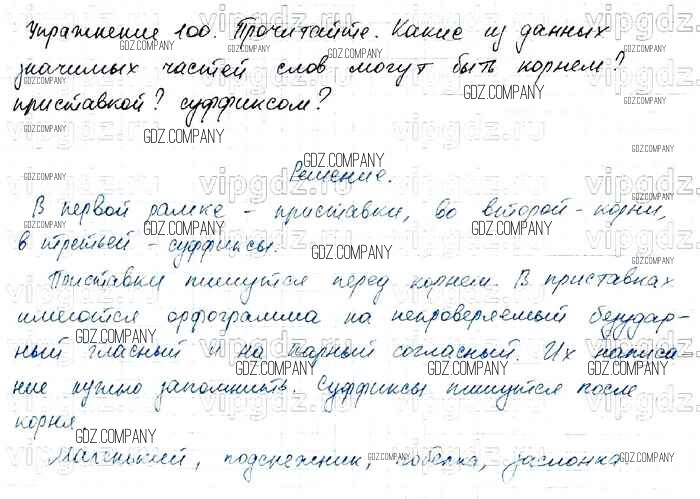 Упражнение 100. Прочитайте. Какие из данных
значимых частей слов могут быть корнем?
приставкой? суффиксом?
Решение.
В первой рамке - приставки, во второй - корни,
в третьей - суффиксы.
Приставки пишутся перед корнем. В приставках
имеются орфограмма на непроверяемый безудар-
ный гласный и на парный согласный. Их написа-
ние нужно запомнить. Суффиксы пишутся после
корня.
Маленький, подснежник, побелка, заслонка.
GDZ.COMPANY
vipgdz.ru